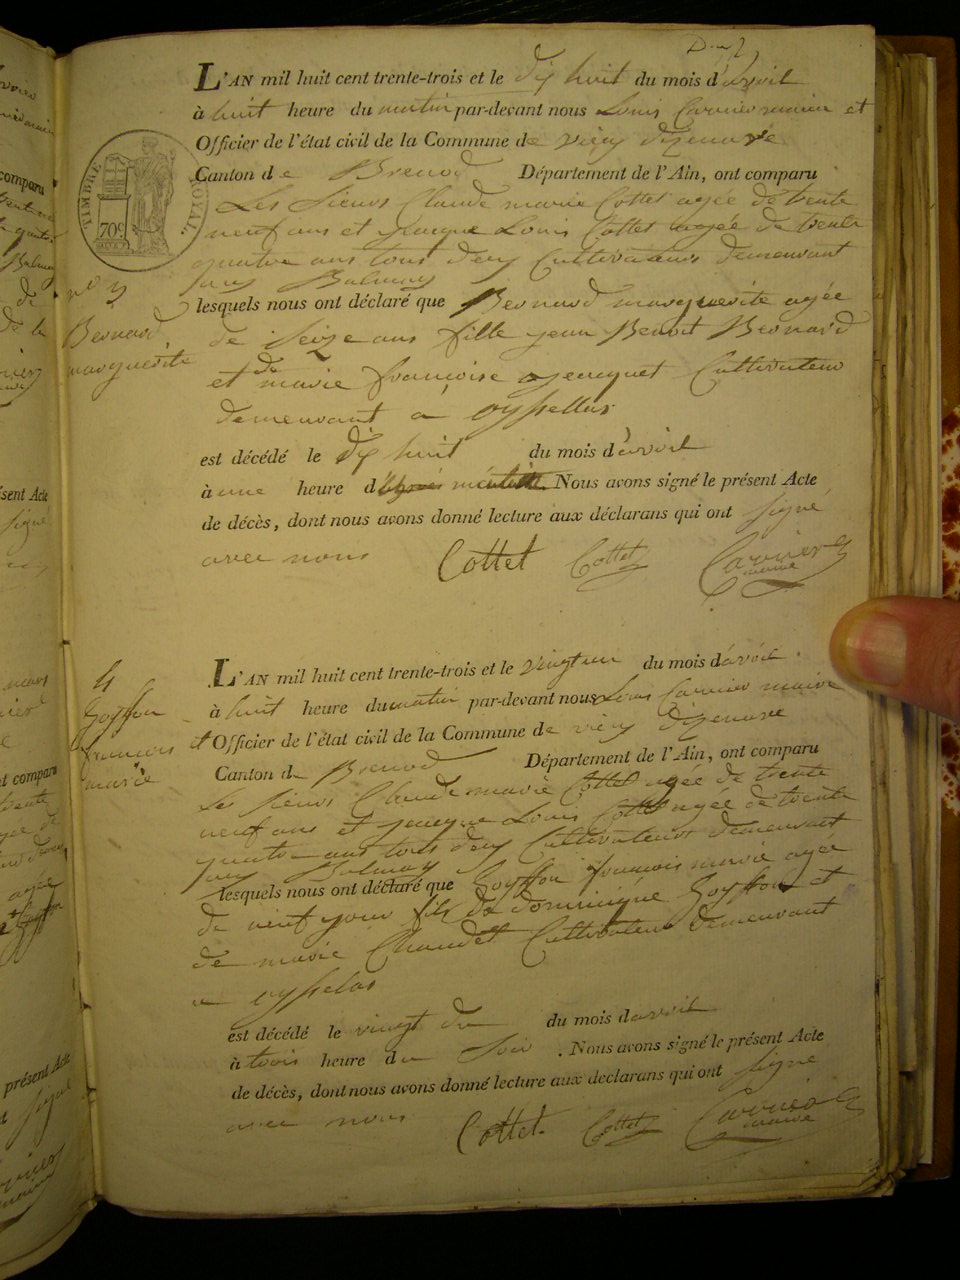 L'AN mil huit cent trente-trois et le dix huit du mois d'avril
à huit heure du matin par-devant nous Louis Carrier maire et
Officier de l'état civil de la Commune de vieu dizenave
Canton de Brenod Département de l'Ain, ont comparu
TIMBRE ROYAL.
70c
Les sieurs Claude marie Cottet agée de trente
neuf ans et jacque Louis Cottet agée de trente
quatre ans tous deux Cultivateurs demeurant
sur Balmay
lesquels nous ont déclaré que Bernard marguerite agée
n° 3
Bernard
marguerite
de seize ans fille jean Benoit Bernard
et de marie françoise jacquet Cultivateur
demeurant a oyssellas
est décédé le dix huit du mois d'avril
à une heure d matin. Nous avons signé le présent Acte
de décès, dont nous avons donné lecture aux déclarans qui ont signé
avec nous Cottet Cottet Carrier
maire
L'AN mil huit cent trente-trois et le vingt un du mois d'avril
4
Goyffon
francois
marie
à huit heure du matin par-devant nous Louis Carrier maire
et Officier de l'état civil de la Commune de vieu dizenave
Canton de Brenod Département de l'Ain, ont comparu
Les sieurs Claude marie Cottet agée de trente
neuf ans et jacque Louis Cottet agée de trente
quatre ans tous deux Cultivateurs demeurant
sur Balmay
lesquels nous ont déclaré que Goyffon francois marie agée
de neuf jour fils de dominique Goyffon et
de marie Chaudet Cultivateur demeurant
a oysselas
est décédé le vingt du mois d'avril
à trois heure du Soir. Nous avons signé le présent Acte
de décès, dont nous avons donné lecture aux declarans qui ont signé
avec nous Cottet. Cottet Carrier
maire